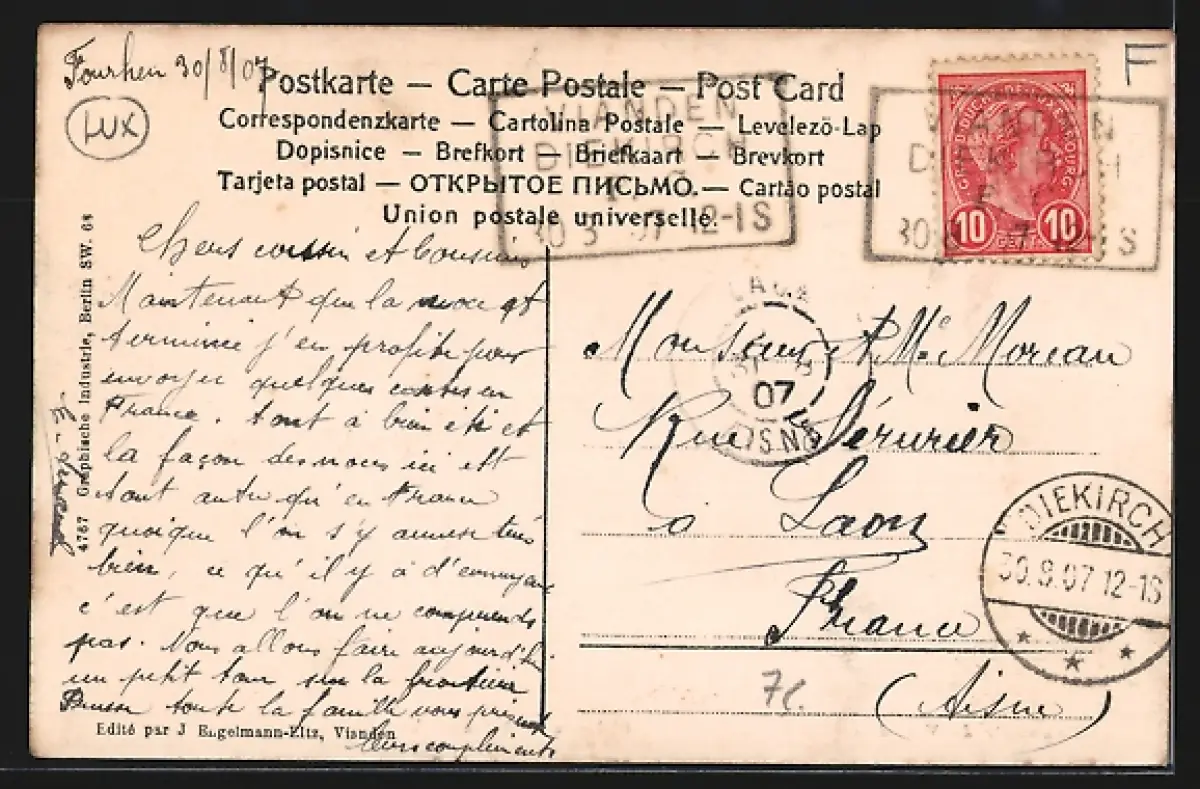 Fourhen 30/8/07
LUX
F
Postkarte — Carte Postale — Post Card
Correspondenzkarte — Cartolina Postale — Levelezö-Lap
Dopisnice — Brefkort — Briefkaart — Brevkort
Tarjeta postal — ОТКРЫТОЕ ПИСЬМО. — Cartão postal
Union postale universelle.
VIANDEN
DIEKIRCH
30 8 07 12-1S
GRAND-DUCHÉ DE LUXEMBOURG
10 CENT. 10
Chers cousin et Cousine
Maintenant que la noce est
terminée j'en profite pour
envoyer quelques cartes en
France. tout a bien été et
la façon des noces ici est
tout autre qu'en France
quoique l'on s'y amuse très
bien, ce qu'il y a d'ennuyant
c'est que l'on ne comprends
pas. Nous allons faire aujourd'hui
un petit tour sur la frontière
Prusse toute la famille vous présente
leurs compliments
4767 Graphische Industrie, Berlin SW. 68
Edité par J Engelmann-Eltz, Vianden
LAON
07
AISNE
Monsieur et Me Moreau
Rue Sérurier
à Laon
France
(Aisne)
DIEKIRCH
30.8.07 12-1S
7c.